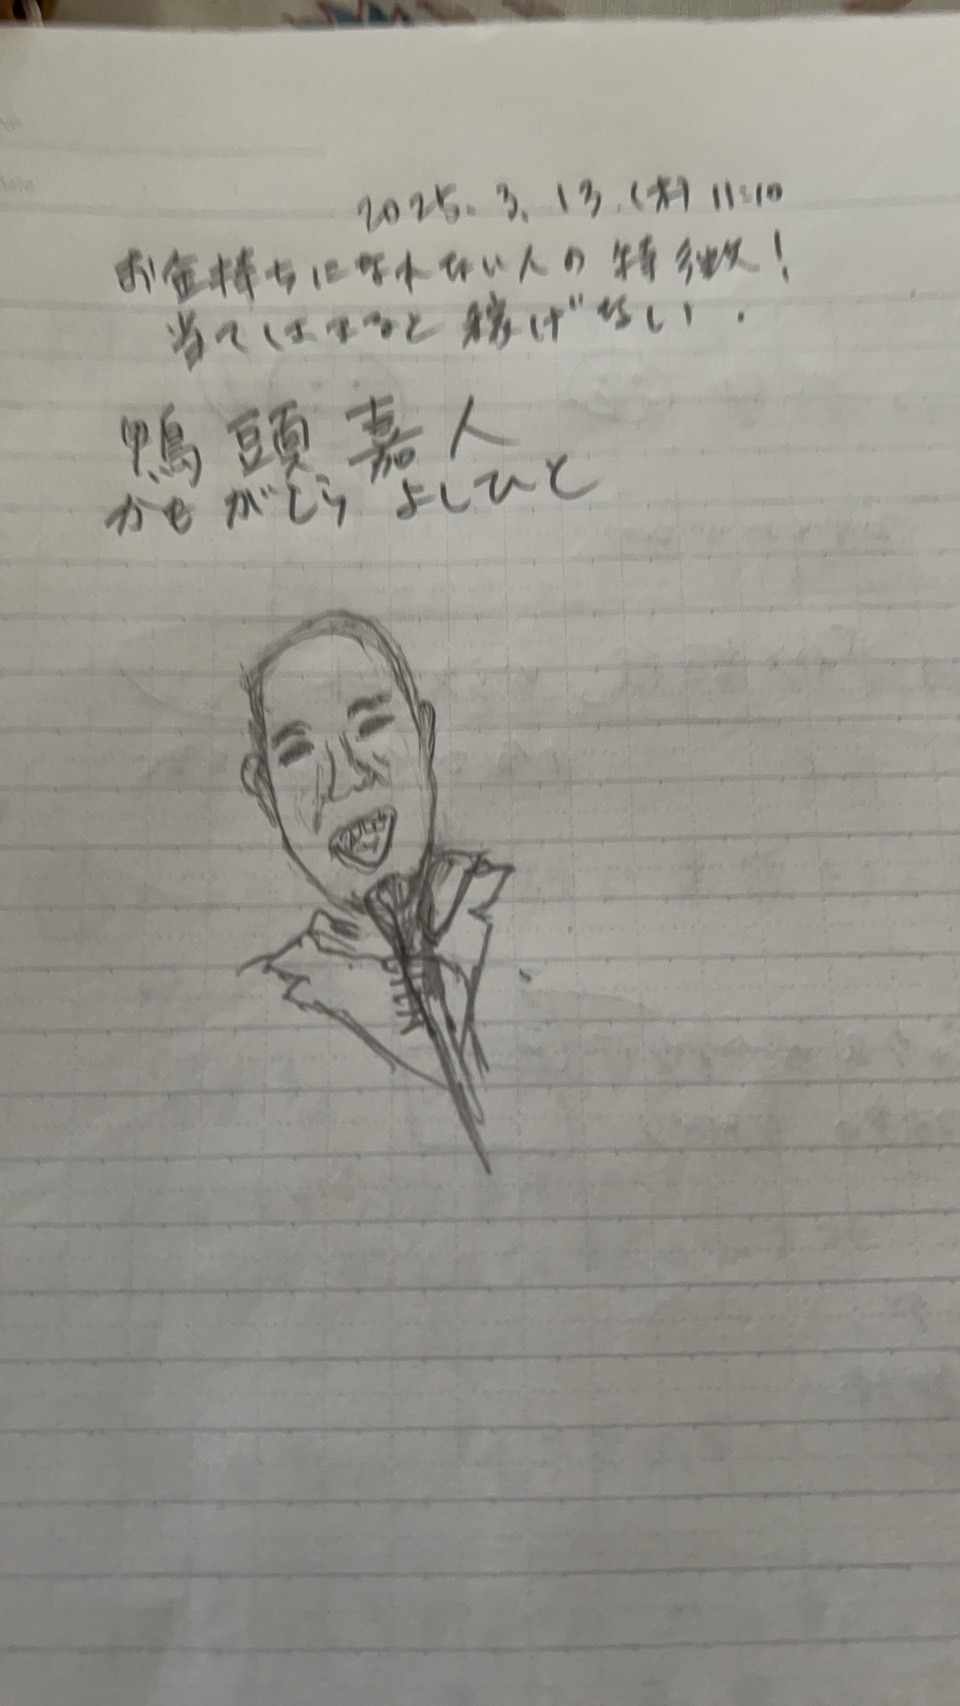 2025.3.13.(木) 11:10
お金持ちになれない人の特徴！
当てはまると稼げない.
鴨頭嘉人
かもがしら よしひと